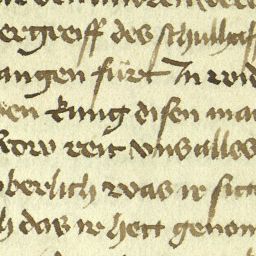 ergreiff des schulhaf
angen fürt In wid
en kung disen ma
reit uns alles
oberlich was ir sitt
h das ir hett genom